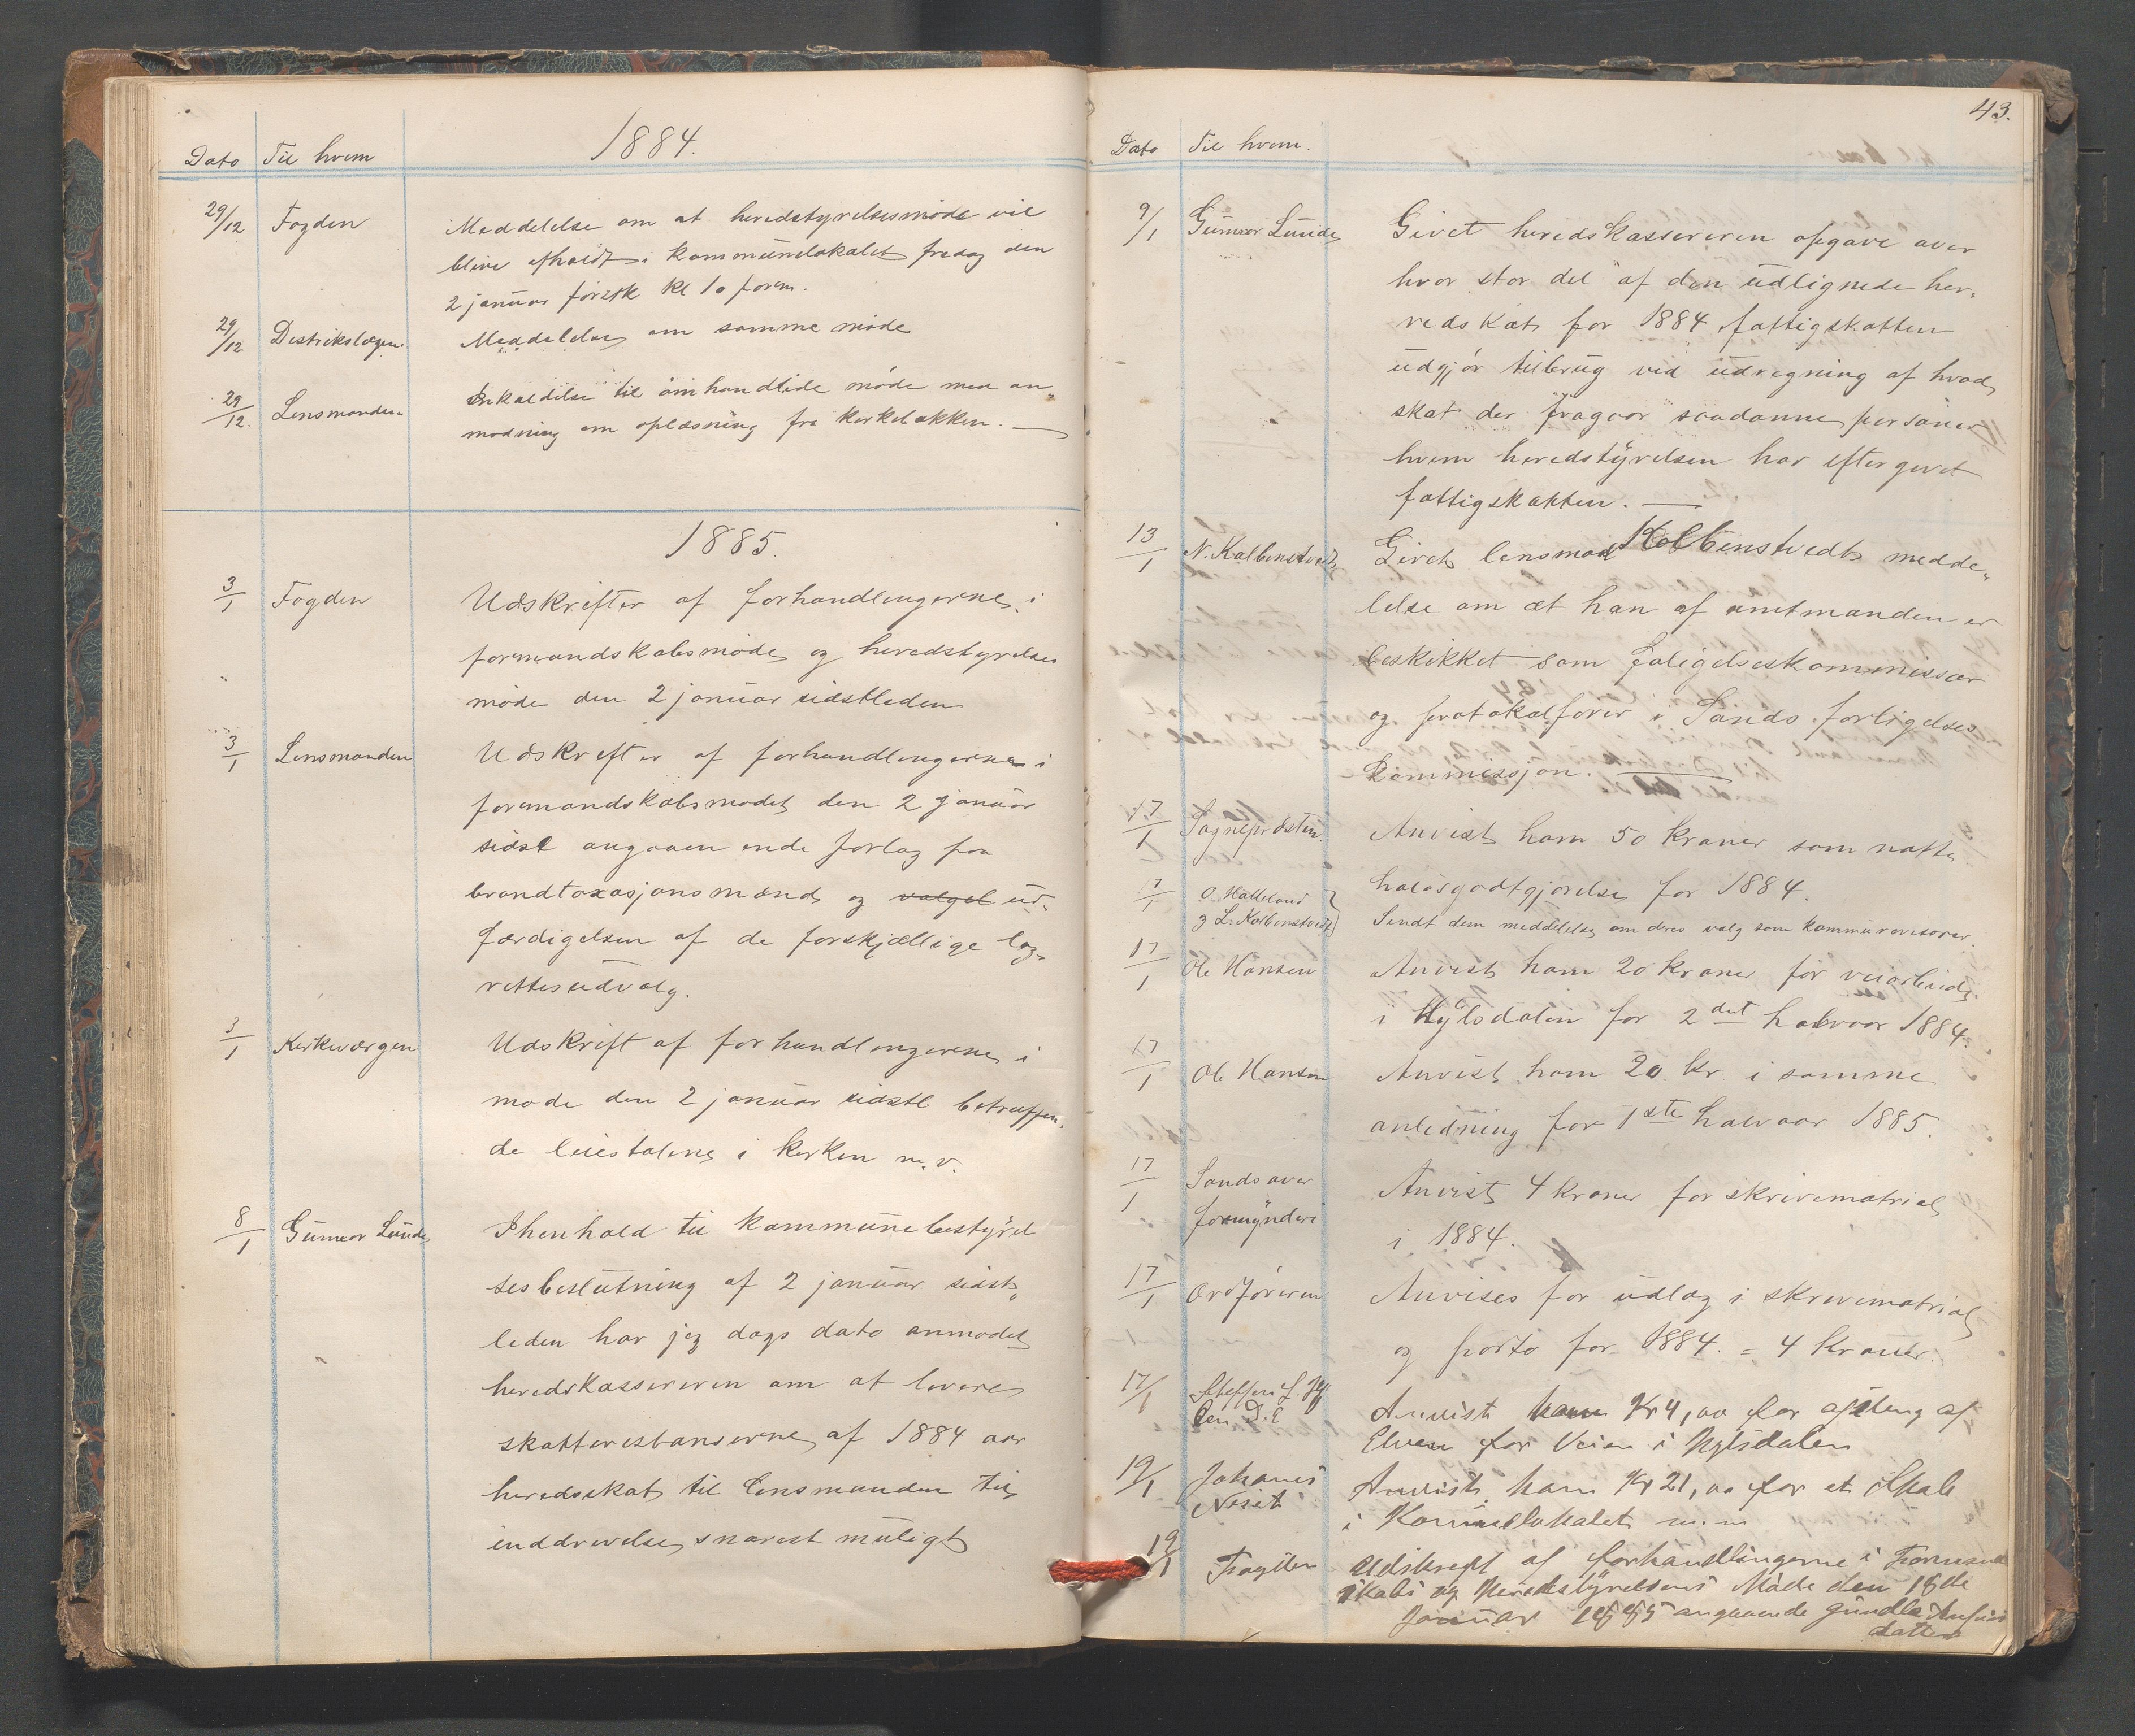 1884.
Dato Til hvem
29/12 Fogden Meddelelse om at heredstyrelsesmøde vil
blive afholdt i kommunelokalet fredag den
2 januar førstk kl 10 form.
29/12 Destrikslægen Meddelelse om samme møde
29/12. Lensmanden Inkaldelse til omhandlide møde med an„
modning om oplæsning fra kirkebakken. —
1885.
3/1 Fogden Udskrifter af forhandlingerne i
formandskabsmøde og heredstyrelses
møde den 2 januar sidstleden
3/1 Lensmanden Udskrifter af forhandlingerne i
formandskabsmødet den 2 januar
sidst angaaen ende forlag paa
brandtaxasjonsmænd og valget ud„
færdigelsen af de forskjællige lag„
rettesudvalg.
3/1 Kirkeværgen Udskrift af forhandlingerne i
møde den 2 januar sidstl betræffen„
de leiestolene i kirken m. v.
8/1 Gunnar Lunde I henhold til kommunebestyrel
sesbeslutning af 2 januar sidst„
leden har jeg dags dato anmodet
heredskassereren om at levere
skatterestanserne af 1884 aar
heredsskat til lensmanden til
inddrivelse snarest muligt
43.
Dato Til hvem.
9/1 Gunnar Lunde Givet heredskassereren opgave over
hvor stor del af den udlignede her„
redskat for 1884 fattigskatten
udgjør tilbrug ved udregning af hvad
skat der fragaar saadanne personer
hvem heredstyrelsen har eftergivet
fattigskatten. —
13/1 N. Kolbenstvedt Givet lensmand Kolbenstvedt medde„
lelse om at han af amtmanden er
beskikket som foligelseskommissær
og protokolfører i Sands forligelses
kommissjon. —
17/1 Sognepræsten Anvist ham 50 kroner som natte
holdsgodtgjørelse for 1884.
17/1 O. Halleland
og L. Kolbenstvedt Sendt dem meddelelse om deres valg som kommunrevisorer.
17/1 Ole Hansen Anvist ham 20 kroner for veiarbeide
i Hylsdalen for 2det halvaar 1884.
17/1 Ole Hansen Anvist ham 20 kr i samme
anledning for 1ste halvaar 1885.
17/1 Sands over
formynderi Anvist 4 kroner for skrivematrial
i 1884.
17/1 Ordføreren Anvises for udlæg i skrivematrial
og porto for 1884. = 4 kroner.
17/1 Steffen L. Hy
len D. E Anvist ham Kr 4,00 for af
Elven for Veien i Hylsdalen
19/1 Johanes
Neset Anvist ham Kr 21,00 for et Skab
i Komunelokalet m. m
19/1 Fogden Udskrift af forhandlingerne i Formand
skabs og Heredstyrelsens Møde den
Januar 1885 angaaende
datter